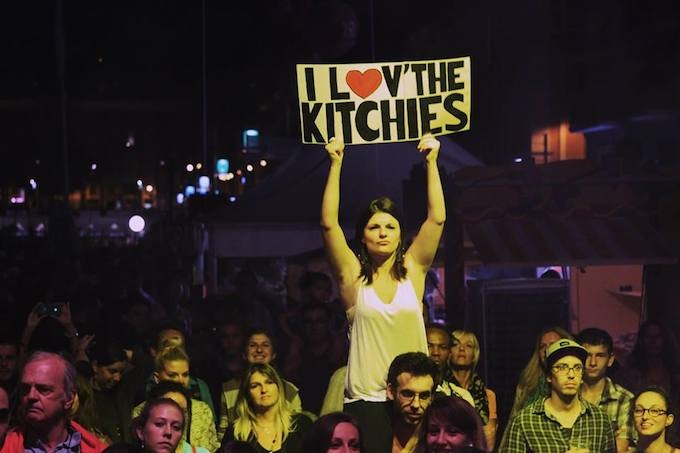 I L❤V'THE
KITCHIES